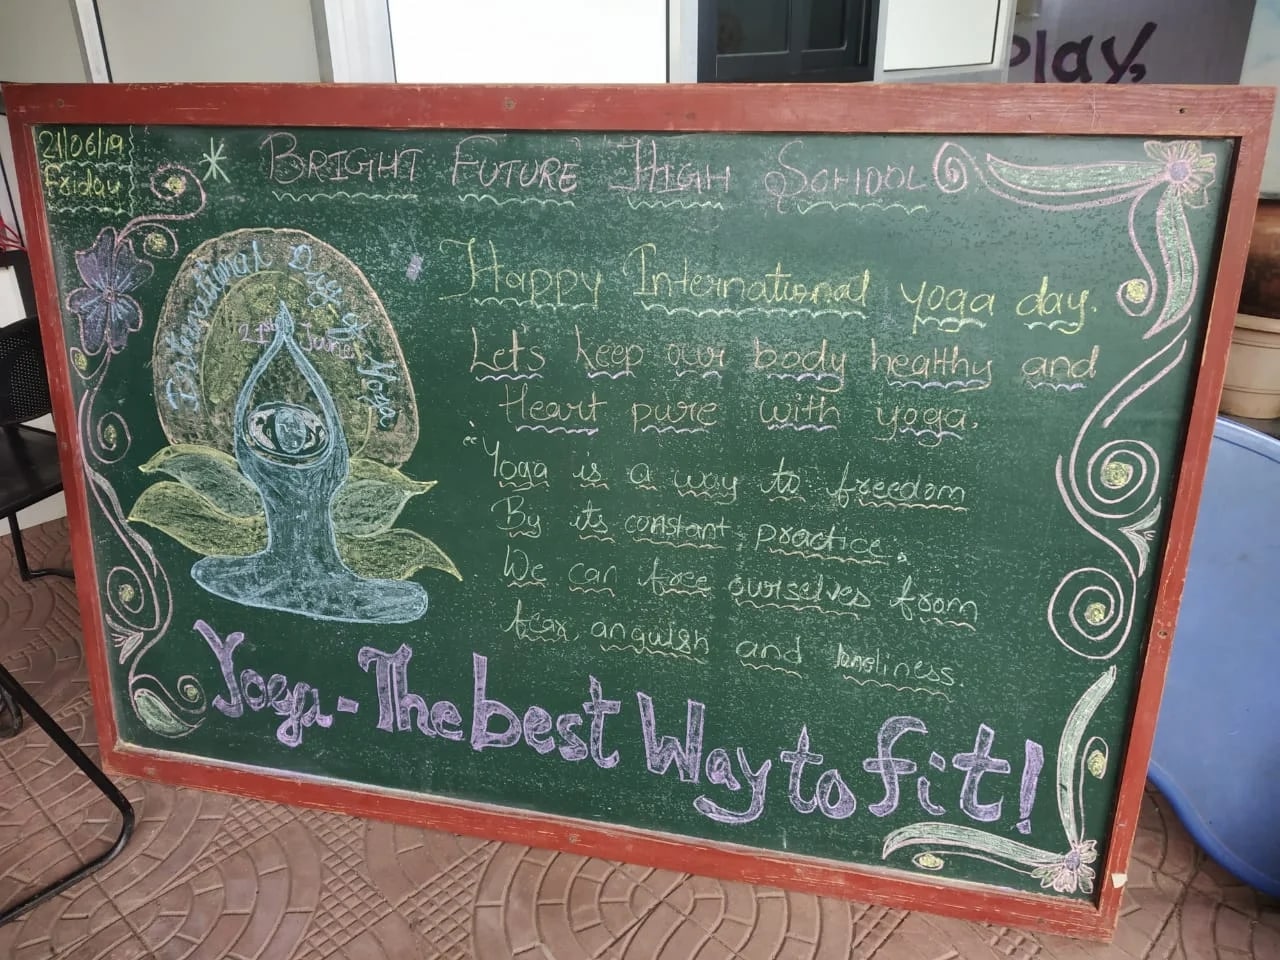 Play,
21/06/19
Friday
BRIGHT FUTURE HIGH SCHOOL
International Day of Yoga
21st June
Happy International yoga day.
Let's keep our body healthy and
Heart pure with yoga.
"Yoga is a way to freedom
By its constant practice.
We can free ourselves from
fear, anguish and loneliness.
Yoga - The best Way to fit!